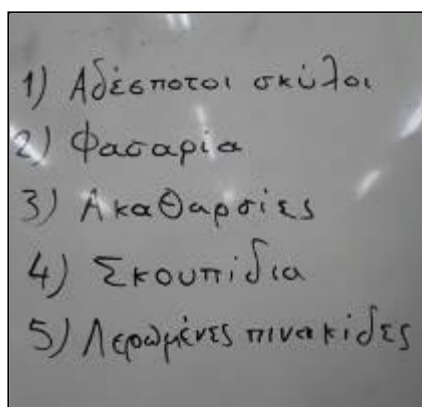 1) Αδέσποτοι σκύλοι
2) Φασαρία
3) Ακαθαρσίες
4) Σκουπίδια
5) Λερωμένες πινακίδες